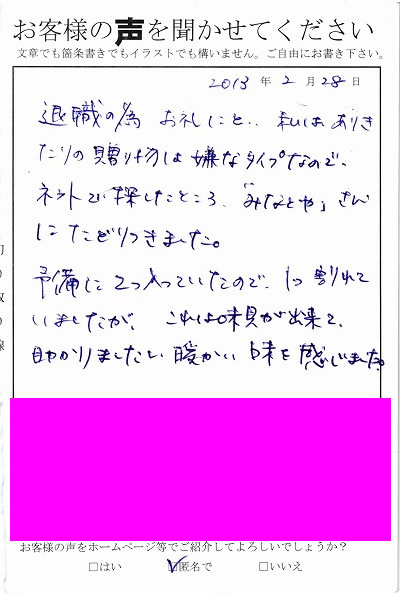 お客様の声を聞かせてください
文章でも箇条書きでもイラストでも構いません。ご自由にお書き下さい。
2013年 2月 28日
退職の為 お礼にと‥ 私は ありき
たりの 贈り物は 嫌なタイプなので、
ネットで 探したところ、「みなとや」さん
に たどりつきました。
予備に 2つ入っていたので、1つ 割れて
いましたが、 これは 味見が出来て、
助かりましたし 暖かい 味を 感じました。
お客様の声をホームページ等でご紹介してよろしいでしょうか？
□はい ☑匿名で □いいえ